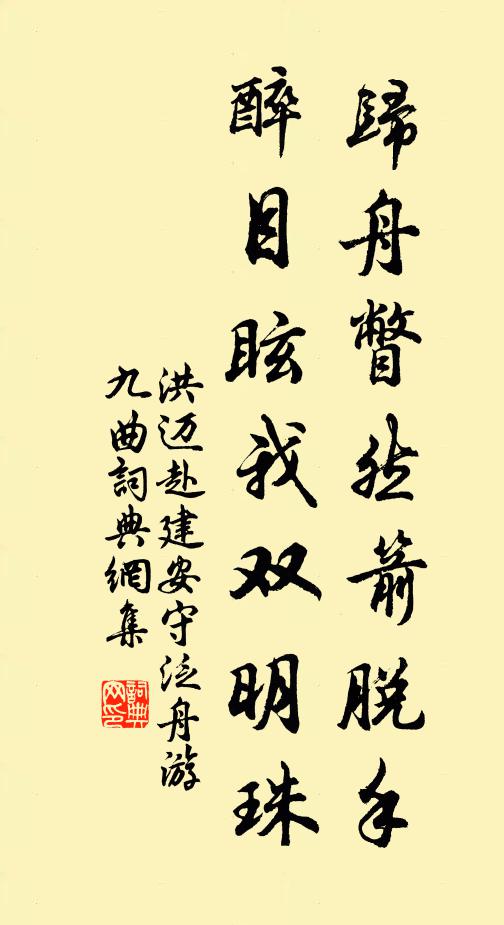 歸舟瞥然箭脱手
醉目眩我双明珠
洪迈赴建安守泛舟游
九曲詞典網集
詞典网印